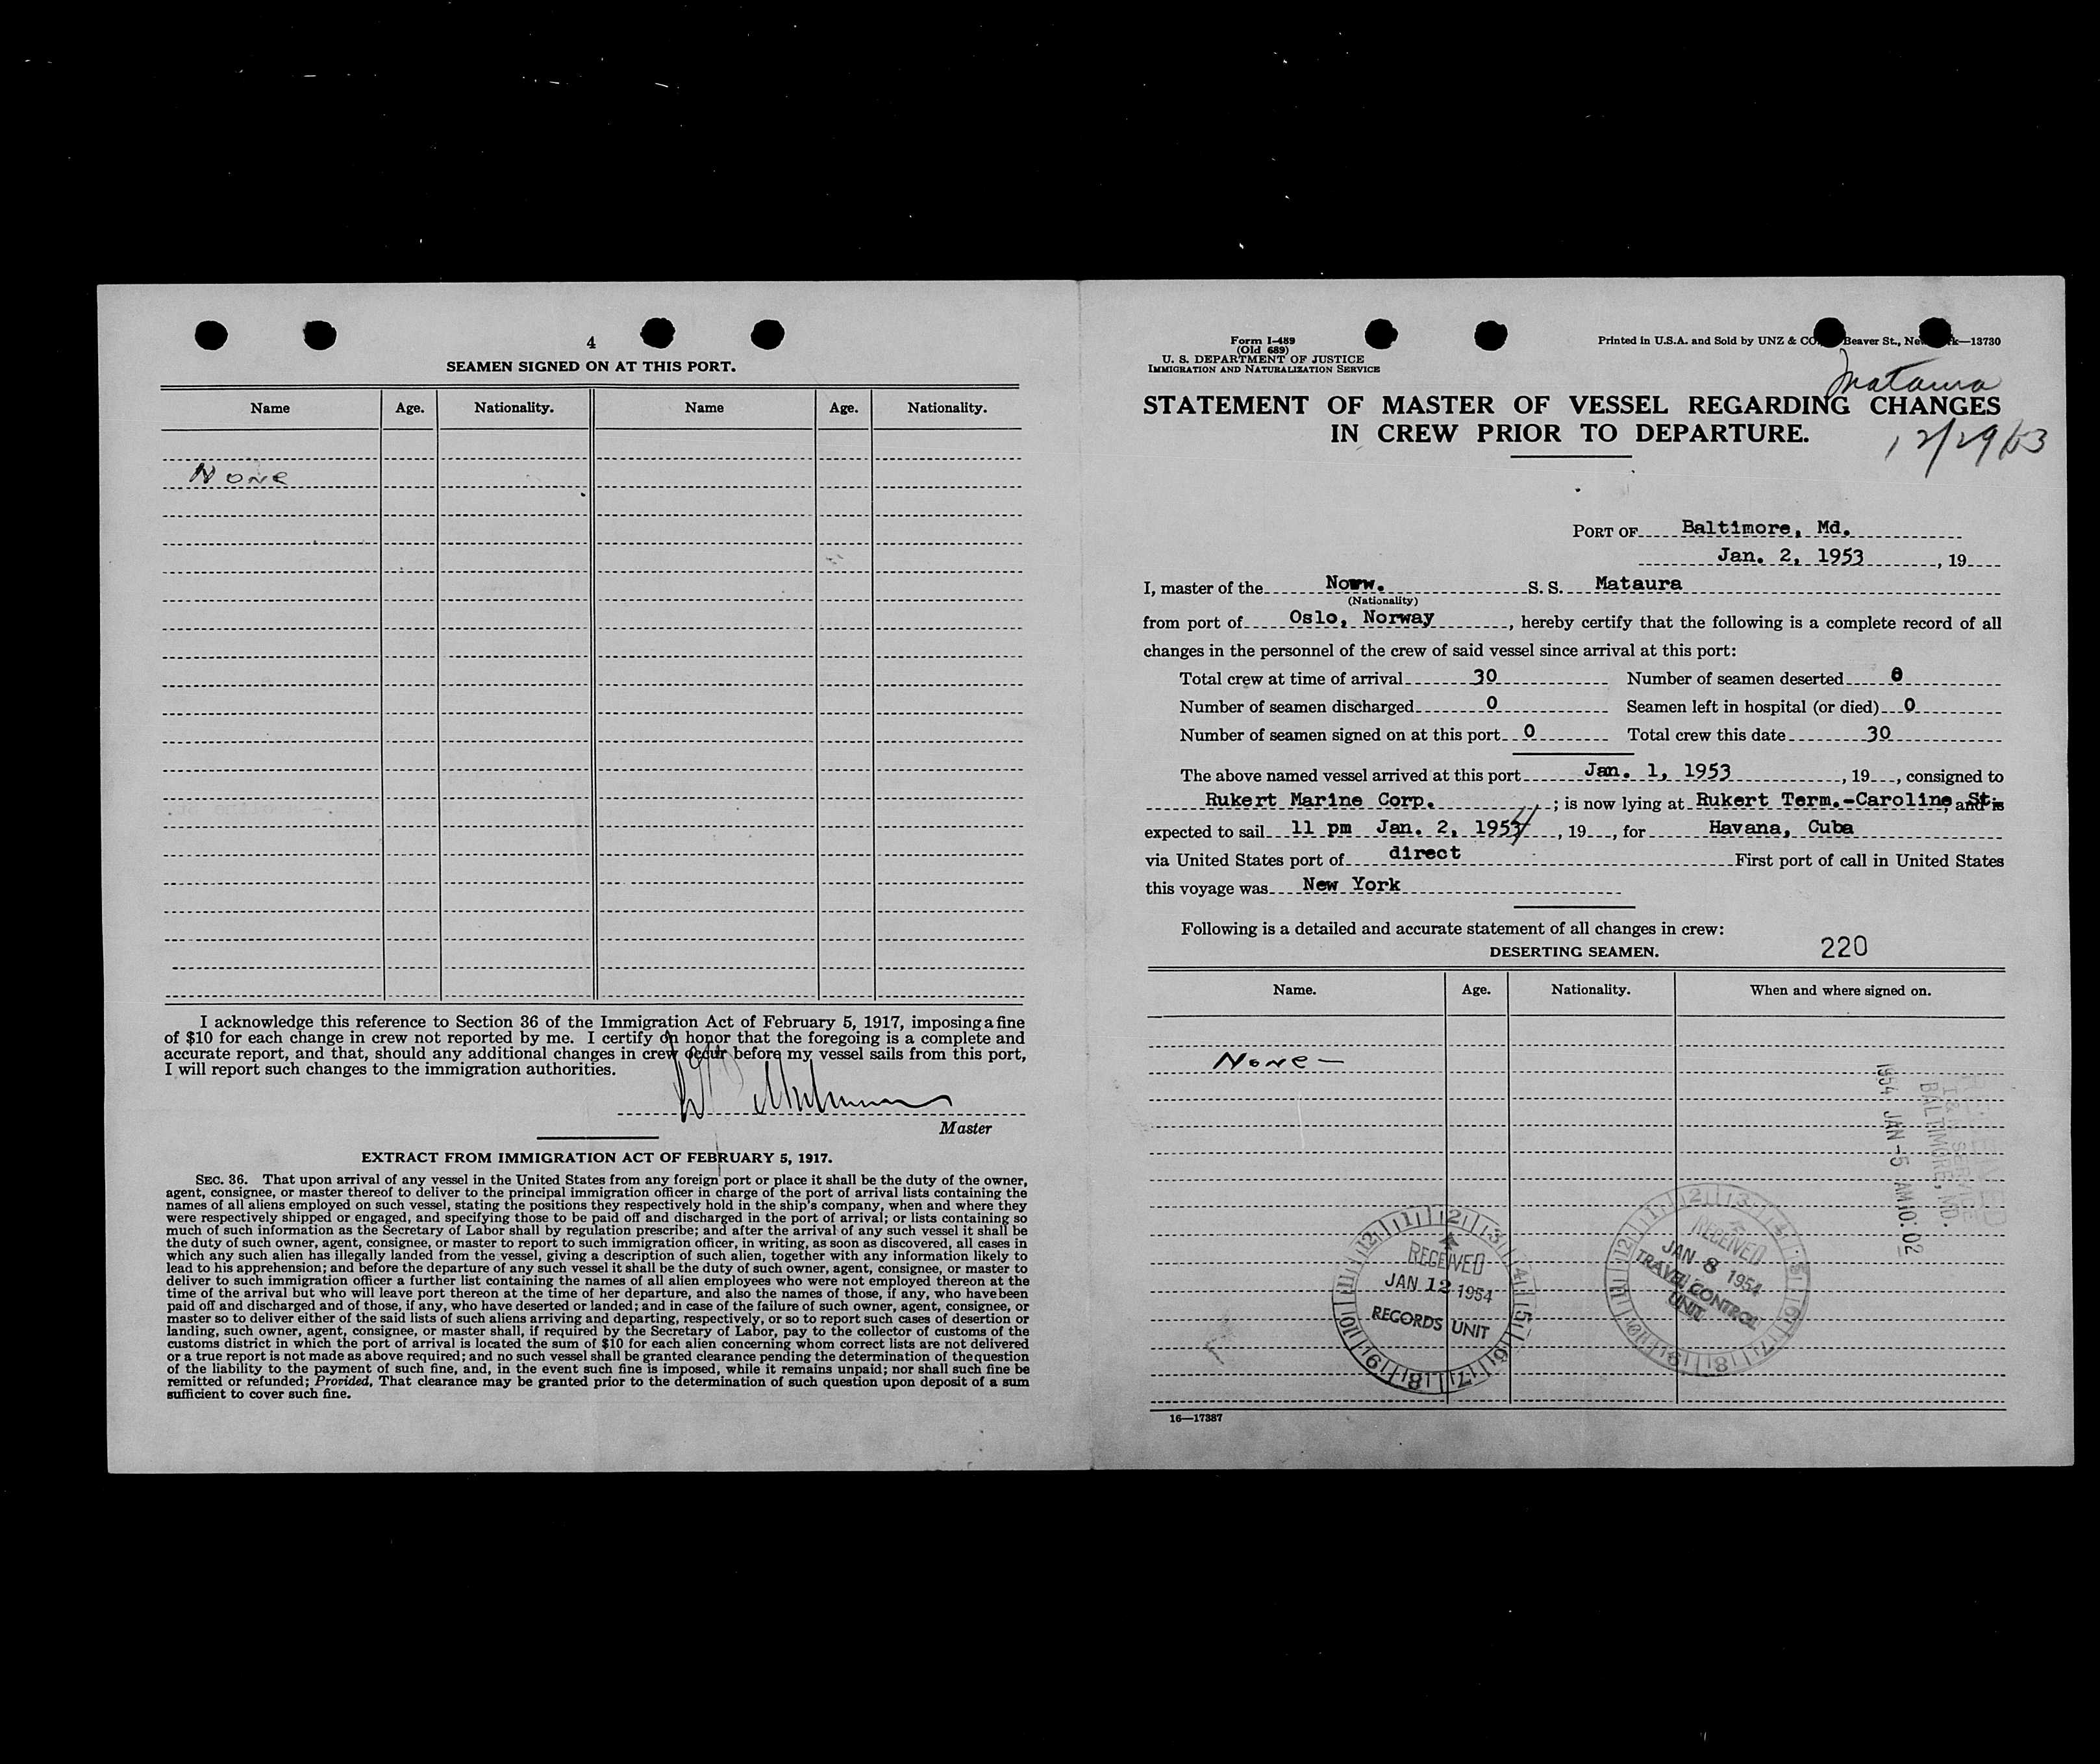 4
SEAMEN SIGNED ON AT THIS PORT.
Name Age. Nationality. Name Age. Nationality.
None
I acknowledge this reference to Section 36 of the Immigration Act of February 5, 1917, imposing a fine
of $10 for each change in crew not reported by me. I certify on honor that the foregoing is a complete and
accurate report, and that, should any additional changes in crew occur before my vessel sails from this port,
I will report such changes to the immigration authorities.
Master
EXTRACT FROM IMMIGRATION ACT OF FEBRUARY 5, 1917.
SEC. 36. That upon arrival of any vessel in the United States from any foreign port or place it shall be the duty of the owner,
agent, consignee, or master thereof to deliver to the principal immigration officer in charge of the port of arrival lists containing the
names of all aliens employed on such vessel, stating the positions they respectively hold in the ship's company, when and where they
were respectively shipped or engaged, and specifying those to be paid off and discharged in the port of arrival; or lists containing so
much of such information as the Secretary of Labor shall by regulation prescribe; and after the arrival of any such vessel it shall be
the duty of such owner, agent, consignee, or master to report to such immigration officer, in writing, as soon as discovered, all cases in
which any such alien has illegally landed from the vessel, giving a description of such alien, together with any information likely to
lead to his apprehension; and before the departure of any such vessel it shall be the duty of such owner, agent, consignee, or master to
deliver to such immigration officer a further list containing the names of all alien employees who were not employed thereon at the
time of the arrival but who will leave port thereon at the time of her departure, and also the names of those, if any, who have been
paid off and discharged and of those, if any, who have deserted or landed; and in case of the failure of such owner, agent, consignee, or
master so to deliver either of the said lists of such aliens arriving and departing, respectively, or so to report such cases of desertion or
landing, such owner, agent, consignee, or master shall, if required by the Secretary of Labor, pay to the collector of customs of the
customs district in which the port of arrival is located the sum of $10 for each alien concerning whom correct lists are not delivered
or a true report is not made as above required; and no such vessel shall be granted clearance pending the determination of the question
of the liability to the payment of such fine, and, in the event such fine is imposed, while it remains unpaid; nor shall such fine be
remitted or refunded; Provided, That clearance may be granted prior to the determination of such question upon deposit of a sum
sufficient to cover such fine.
Form I-489
(Old 689)
U. S. DEPARTMENT OF JUSTICE
IMMIGRATION AND NATURALIZATION SERVICE
Printed in U.S.A. and Sold by UNZ & CO. Beaver St., New —13730
Mataura
STATEMENT OF MASTER OF VESSEL REGARDING CHANGES
IN CREW PRIOR TO DEPARTURE.
12/29/53
PORT OF Baltimore, Md.
Jan. 2, 1953, 19
I, master of the Norw. S. S. Mataura
(Nationality)
from port of Oslo, Norway, hereby certify that the following is a complete record of all
changes in the personnel of the crew of said vessel since arrival at this port:
Total crew at time of arrival 30 Number of seamen deserted 0
Number of seamen discharged 0 Seamen left in hospital (or died) 0
Number of seamen signed on at this port 0 Total crew this date 30
The above named vessel arrived at this port Jan. 1, 1953, 19, consigned to
Rukert Marine Corp.; is now lying at Rukert Term.-Caroline St. and is
expected to sail 11 pm Jan. 2, 1954, 19, for Havana, Cuba
via United States port of direct First port of call in United States
this voyage was New York
Following is a detailed and accurate statement of all changes in crew:
DESERTING SEAMEN. 220
Name. Age. Nationality. When and where signed on.
None—
RECEIVED
I & N SERVICE
BALTIMORE, MD.
1954 JAN -5 AM 10:02
RECEIVED
JAN 12 1954
RECORDS UNIT
RECEIVED
JAN 8 1954
TRAVEL CONTROL
UNIT
16—17387